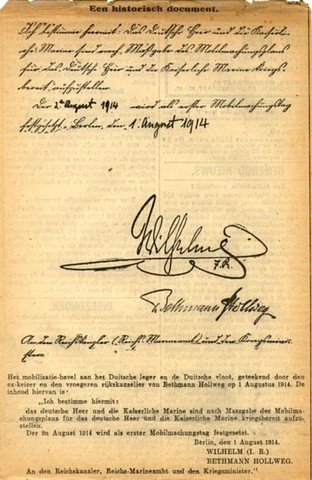 Een historisch document.
Ich bestimme hiermit: Das Deutsche Heer und die Kaiser-
liche Marine sind nach Maßgabe des Mobilmachungsplans
für das Deutsche Heer und die Kaiserliche Marine kriegs-
bereit aufzustellen.
Der 2te August 1914 wird als erster Mobilmachungstag
festgesetzt. Berlin, den 1. August 1914
Wilhelm
I. R.
v. Bethmann Hollweg
An den Reichskanzler (Reichs-Marineamt) und den Kriegsmini-
ster.
Het mobilisatie-bevel aan het Duitsche leger en de Duitsche vloot, geteekend door den
ex-keizer en den vroegeren rijkskanselier von Bethmann Hollweg op 1 Augustus 1914. De
inhoud hiervan is:
„Ich bestimme hiermit:
das deutsche Heer und die Kaiserliche Marine sind nach Maszgabe des Mobilma-
chungsplans für das deutsche Heer und die Kaiserliche Marine kriegsbereit aufzu-
stellen.
Der 2n August 1914 wird als erster Mobilmachungstag festgesetzt.
Berlin, den 1 August 1914.
WILHELM (I. R.)
BETHMANN HOLLWEG.
An den Reichskanzler, Reichs-Marineamt und den Kriegsminister".